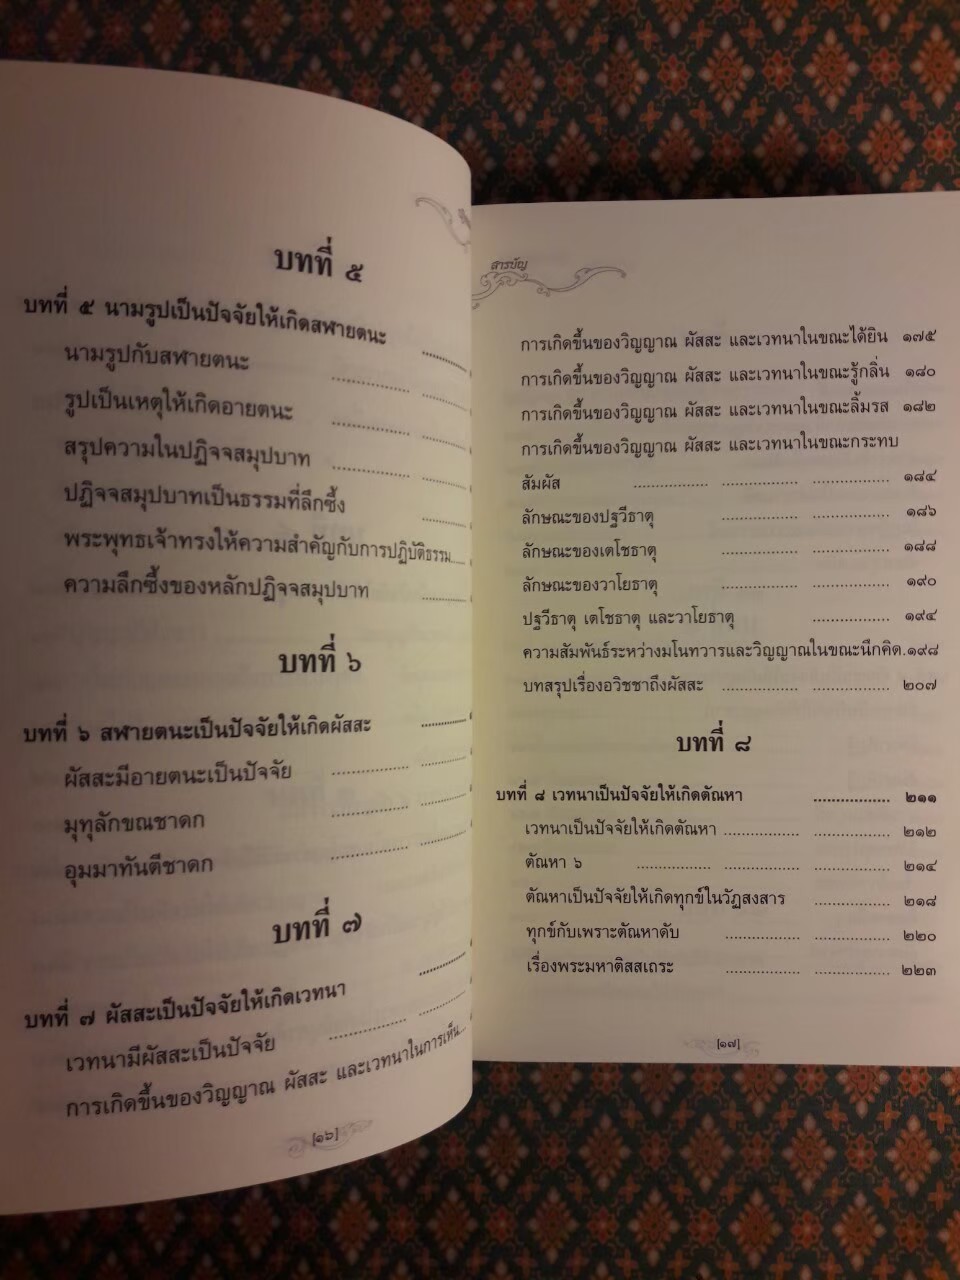 บทที่ ๕
บทที่ ๕ นามรูปเป็นปัจจัยให้เกิดสฬายตนะ
นามรูปกับสฬายตนะ
รูปเป็นเหตุให้เกิดอายตนะ
สรุปความในปฏิจจสมุปบาท
ปฏิจจสมุปบาทเป็นธรรมที่ลึกซึ้ง
พระพุทธเจ้าทรงให้ความสำคัญกับการปฏิบัติธรรม
ความลึกซึ้งของหลักปฏิจจสมุปบาท
บทที่ ๖
บทที่ ๖ สฬายตนะเป็นปัจจัยให้เกิดผัสสะ
ผัสสะมีอายตนะเป็นปัจจัย
มุทุลักขณชาดก
อุมมาทันตีชาดก
บทที่ ๗
บทที่ ๗ ผัสสะเป็นปัจจัยให้เกิดเวทนา
เวทนามีผัสสะเป็นปัจจัย
การเกิดขึ้นของวิญญาณ ผัสสะ และเวทนาในการเห็น
[๑๖]
สารบัญ
การเกิดขึ้นของวิญญาณ ผัสสะ และเวทนาในขณะได้ยิน ๑๗๕
การเกิดขึ้นของวิญญาณ ผัสสะ และเวทนาในขณะรู้กลิ่น ๑๘๐
การเกิดขึ้นของวิญญาณ ผัสสะ และเวทนาในขณะลิ้มรส ๑๘๒
การเกิดขึ้นของวิญญาณ ผัสสะ และเวทนาในขณะกระทบ
สัมผัส ๑๘๔
ลักษณะของปฐวีธาตุ ๑๘๖
ลักษณะของเตโชธาตุ ๑๘๘
ลักษณะของวาโยธาตุ ๑๙๐
ปฐวีธาตุ เตโชธาตุ และวาโยธาตุ ๑๙๔
ความสัมพันธ์ระหว่างมโนทวารและวิญญาณในขณะนึกคิด.๑๙๘
บทสรุปเรื่องอวิชชาถึงผัสสะ ๒๐๗
บทที่ ๘
บทที่ ๘ เวทนาเป็นปัจจัยให้เกิดตัณหา ๒๑๑
เวทนาเป็นปัจจัยให้เกิดตัณหา ๒๑๒
ตัณหา ๖ ๒๑๔
ตัณหาเป็นปัจจัยให้เกิดทุกข์ในวัฏสงสาร ๒๑๘
ทุกข์กับเพราะตัณหาดับ ๒๒๐
เรื่องพระมหาติสสเถระ ๒๒๓
[๑๗]